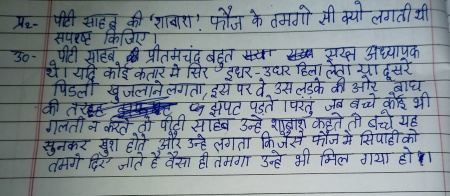 प्र2- पीटी साहब की 'शाबाश' फौज के तमगो सी क्यो लगती थी
स्पष्ट किजिए।
उ0- पीटी साहब प्रीतमचंद बहुत सख्त अध्यापक
थे। यदि कोई कतार में सिर इधर-उधर हिला लेता या दूसरे
पिंडली खुजलाने लगता, इस पर वे उस लड़के की ओर बाघ
की तरह झपट पड़ते। परंतु जब बच्चे कोई भी
गलती न करते तो पीटी साहब उन्हें शाबाश कहते तो बच्चे यह
सुनकर खुश होते और उन्हें लगता कि जैसे फौज में सिपाही को
तमगे दिए जाते है वैसा ही तमगा उन्हें भी मिल गया हो।